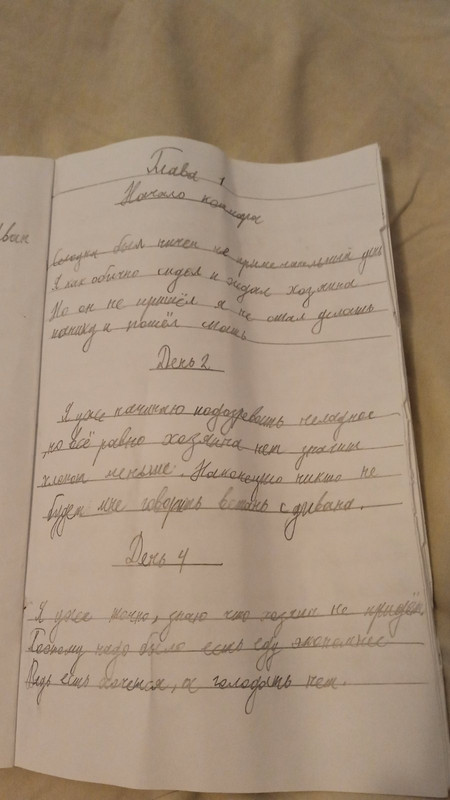 Иван
Глава 1
Начало кошмара
был ничем не день
Я как обычно сидел и ждал хозяина
Но он не пришёл я не стал делать
панику и пошёл спать
День 2
Я уже начинаю подозревать неладное
но всё равно хозяина нет значит
хлопот меньше. никто не
будет мне говорить встань с дивана.
День 4
Я уже точно, знаю что хозяин не придёт.
Поэтому надо было есть еду экономнее
Ведь есть хочется, а голодать нет.